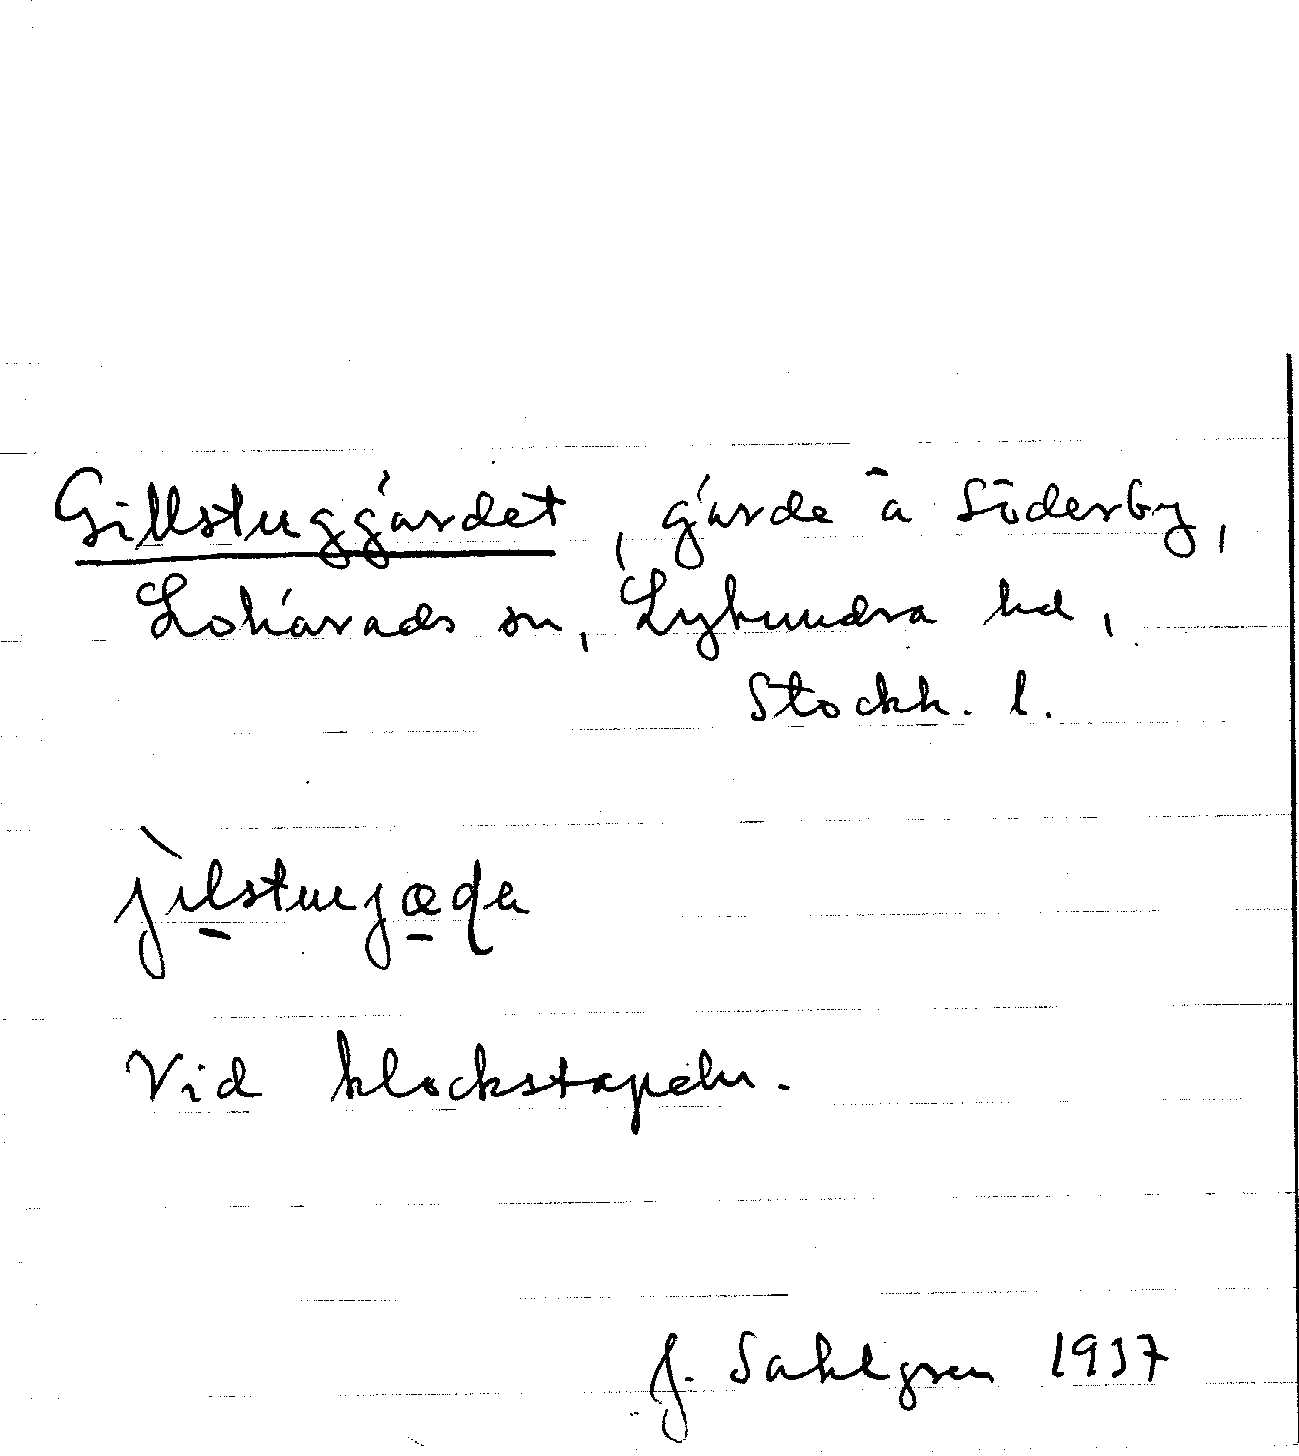 Gillstuggärdet, gärde å Söderby,
Lohärads sn, Lyhundra hd,
Stockh. l.
Vid klockstapeln.
J. Sahlgren 1937